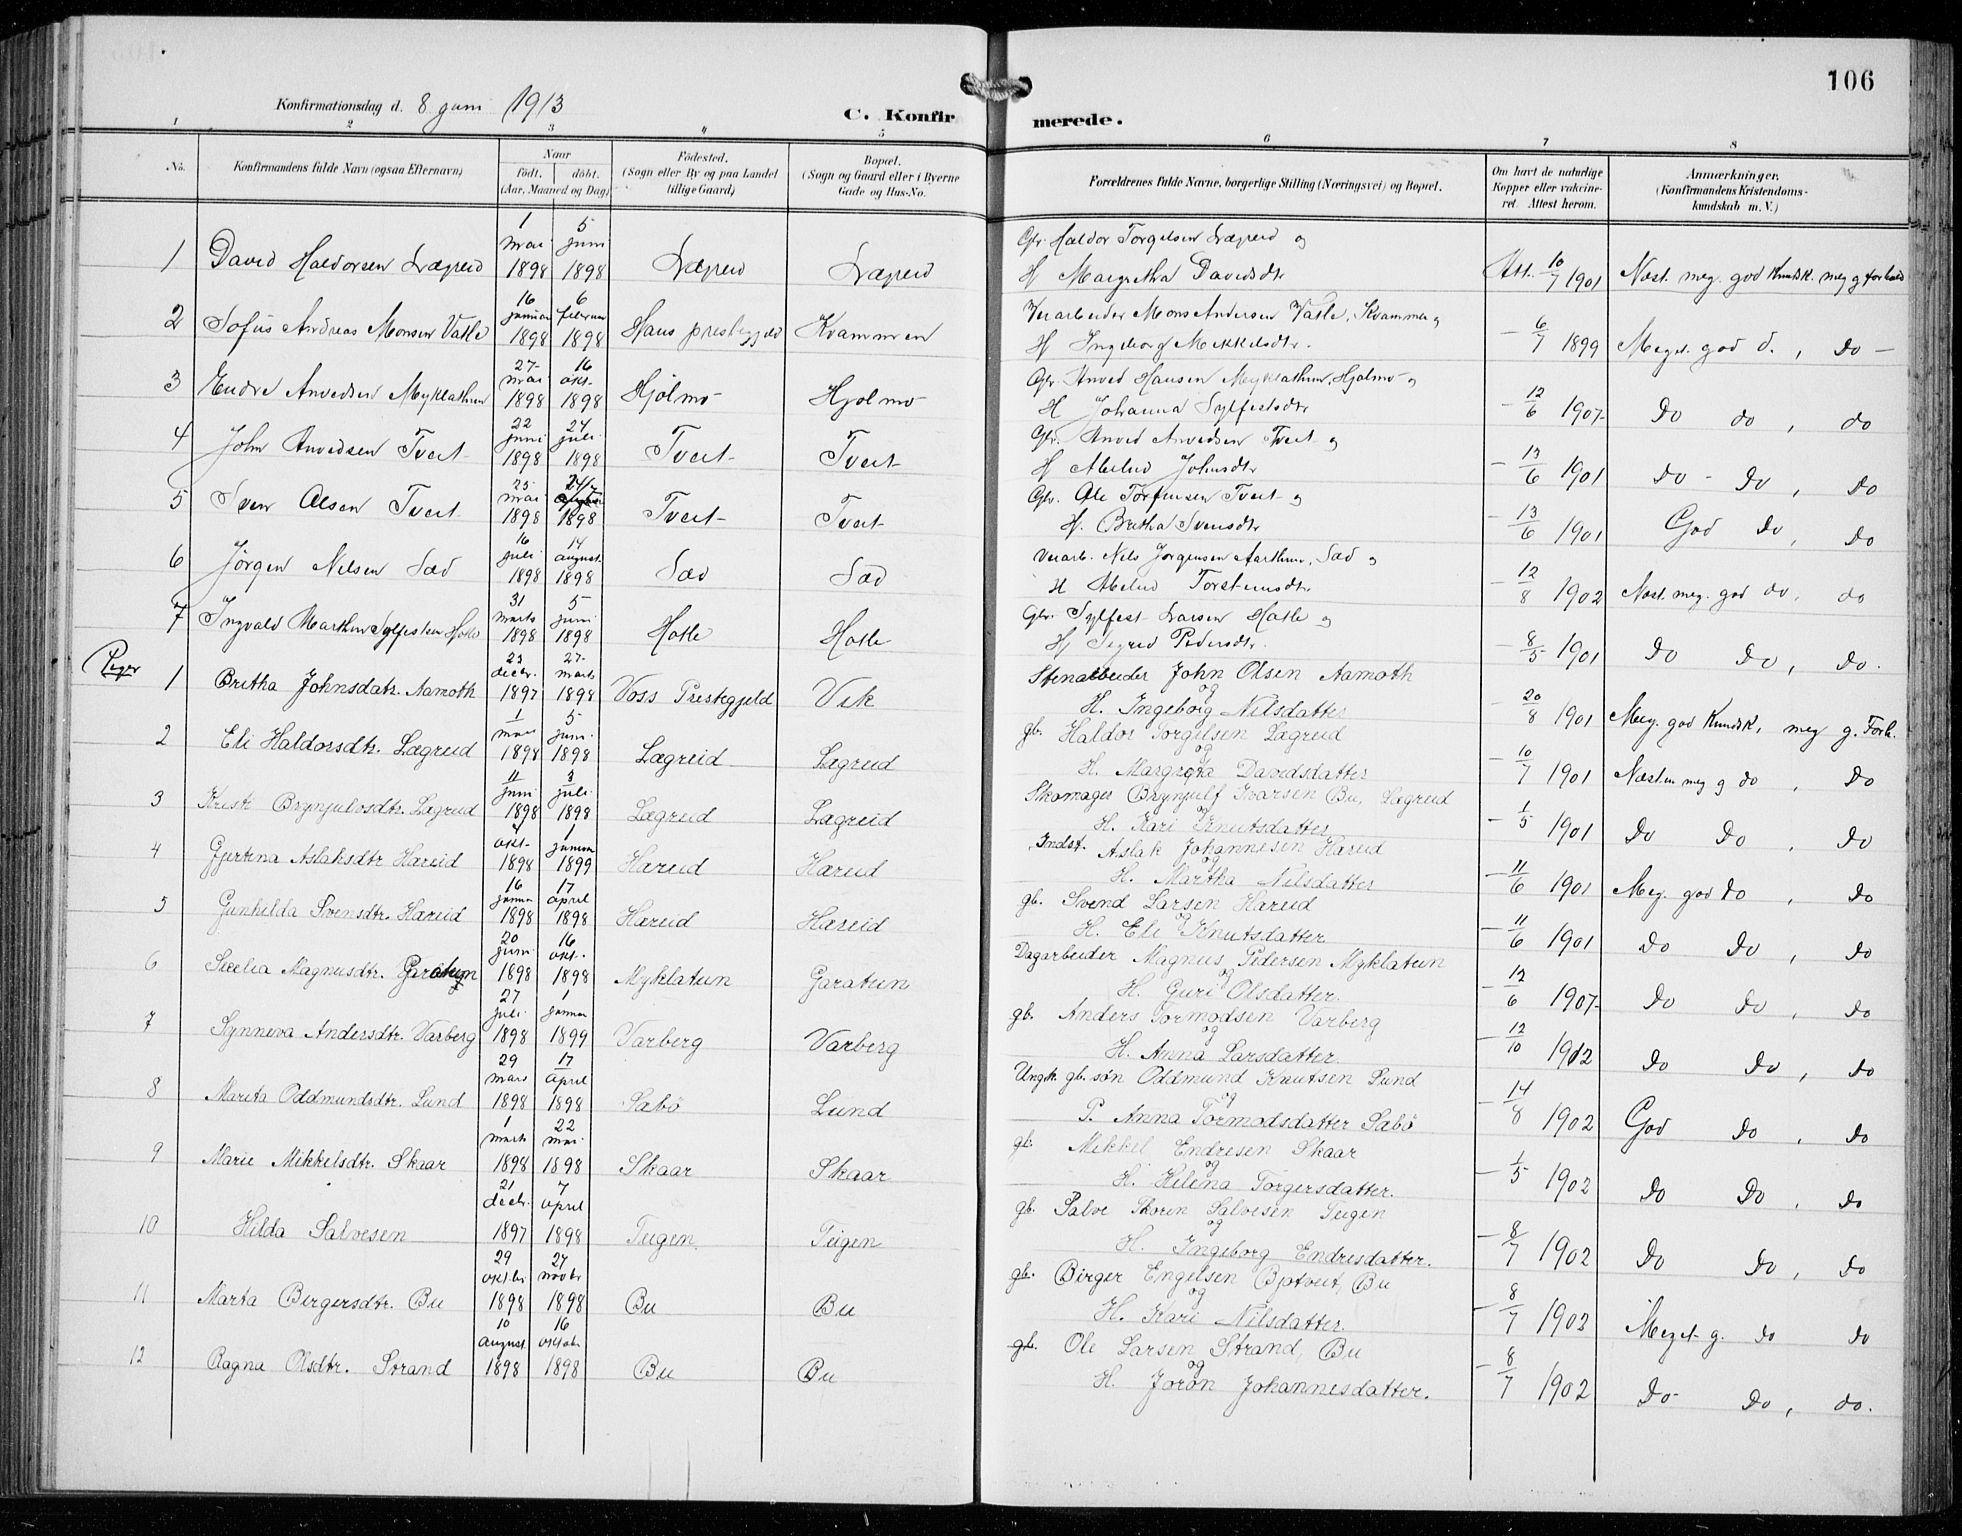 106
Konfirmationsdag d. 8 juni 1913
C. Konfirmerede.
1 2 3 4 5 6 7 8
No. Konfirmandens fulde Navn (ogsaa Efternavn) Naar født. døbt. (Aar, Maaned og Dag) Fødested. (Sogn eller By og paa Landet tillige Gaard) Bopæl. (Sogn og Gaard eller i Byerne Gade og Hus-No. Forældrenes fulde Navne, borgerlige Stilling (Næringsvei) og Bopæl. Om havt de naturlige Kopper eller vakcineret. Attest herom. Anmærkninger. (Konfirmandens Kristendomskundskab m. V.)
1 David Haldorsen Lægreid 1 mai 1898 5 juni 1898 Lægreid Lægreid Gbr. Haldor Torgelsen Lægreid og H Margretha Davidsdtr Att. 10/7 1901 Næst. meg. god Kundsk. meg g forhold
2 Sofus Andreas Monsen Vatle 16 januar 1898 6 februar 1898 Haus prestegjeld Kvammen Veiarbeider Mons Andersen Vatle, Kvammen og H Ingeborg Mikkelsdtr. - 6/7 1899 Meget god d. , do -
3 Endre Anvedsen Myklathun 27 mai 1898 16 okt. 1898 Hjølmo Hjolmo Gbr Anved Hansen Myklathun, Hjolmo og H Johanna Sylfestsdtr - 12/6 1907 Do do , do
4 John Anvedsen Tveit 22 juni 1898 24 juli 1898 Tveit Tveit Gbr. Anved Anvedsen Tveit og H Abelud Johnsdtr - 13/6 1901 Do - Do , Do
5 Sven Olsen Tveit 25 mai 1898 24/7 1898 Tveit Tveit Gbr. Ole Torfinsen Tveit og H. Britha Svensdtr - 13/6 1901 God do , Do
6 Jörgen Nilsen Sæd 16 juli 1898 14 august 1898 Sæd Sæd Veiarb. Nils Jorgensen Aarthun, Sæd og H Abelud Torsteinsdtr - 12/8 1902 Næst. meg. god do, do
7 Ingvald Marthin Sylfesten Hotle 31 marts 1898 5 juni 1898 Hotle Hotle Gbr. Sylfest Larsen Hotle og H Sigrid Pedersdtr. - 8/5 1901 Do Do, Do.
Piger
1 Britha Johnsdatr. Aamoth 23 decbr. 1897 27 marts 1898 Voss Prestegjeld Vik Stenarbeider John Olsen Aamoth og H. Ingeborg Nilsdatter - 20/8 1901 Meg. god Kundsk, meg g. Forh.
2 Eli Haldorsdtr. Lægreid 1 mai 1898 5 juni 1898 Lægreid Lægreid gb. Haldor Torgelsen Lægreid og H. Margreta Davidsdatter - 10/7 1901 Næsten meg g do , Do
3 Kristi Brynjulvsdtr. Lægreid 11 juni 1898 3 juli 1898 Lægreid Lægreid Skomager Brynjulf Ivarsen Bu, Lægreid og H. Kari Knutsdatter - 1/5 1901 Do Do , Do
4 Gjertina Aslaksdtr Hæreid okt. 1898 1 januar 1899 Hæreid Hæreid Indst. Aslak Johannesen Hæreid og H. Martha Nilsdatter - 11/6 1901 Meg. god do , Do
5 Gunhilda Svensdtr. Hæreid 16 januar 1898 17 april 1898 Hæreid Hæreid gb. Svend Larsen Hæreid og H. Eli Knutsdatter - 11/6 1901 Do Do , Do
6 Sicelia Magnusdtr. Garatun 20 juni 1898 16 okt. 1898 Myklatun Garatun Dagarbeider Magnus Pedersen Myklatun og H. Guri Olsdatter. - 12/6 1907 Do Do , Do
7 Synneva Andersdtr. Varberg 27 juli 1898 1 januar 1899 Varberg Varberg gb. Anders Tormodsen Varberg og H. Anna Larsdatter - 12/10 1912 Do Do , Do
8 Marita Oddmundsdtr. Lund 29 mars 1898 17 april 1898 Sæbö Lund Ungk. gb. søn Oddmund Knutsen Lund og P. Anna Tormodsdatter Sæbö - 14/8 1902 God Do , Do
9 Marie Mikkelsdtr. Skaar 1 marts 1898 22 mai 1898 Skaar Skaar gb. Mikkel Endresen Skaar og H. Helena Torgersdatter. - 1/5 1902 Do Do , Do
10 Hilda Salvesen 21 decbr. 1897 7 april 1898 Teigen Teigen gb. Salve Thorin Salvesen Teigen og H. Ingeborg Endresdatter. - 8/7 1902 Do Do , Do
11 Marta Birgersdtr. Bu 29 oktbr 1898 27 novbr 1898 Bu Bu gb. Birger Engelsen Bjotveit, Bu og H. Kari Nilsdatter. - 8/7 1902 Meget g. do do
12 Ragna Olsdtr. Strand 10 august 1898 16 oktob. 1898 Bu Bu gb. Ole Larsen Strand, Bu og H. Jorön Johannesdatter. - 8/7 1902 Do Do, do.